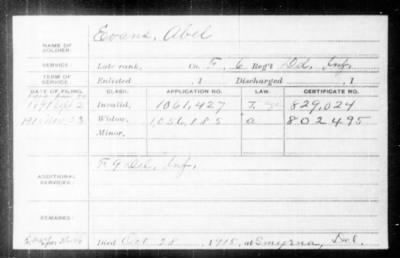 Evans, Abel
NAME OF SOLDIER:
SERVICE: Late rank, Co. F, 6 Reg't Del. Inf.
TERM OF SERVICE: Enlisted , 1 Discharged , 1
DATE OF FILING. CLASS. APPLICATION NO. LAW. CERTIFICATE NO.
Invalid, 1061,427 829,024
Widow, 1,056,185 a 802495
Minor,
F 9 Del. Inf.
ADDITIONAL SERVICES:
REMARKS:
Died Oct. 28, 1915, at Smyrna, Del.